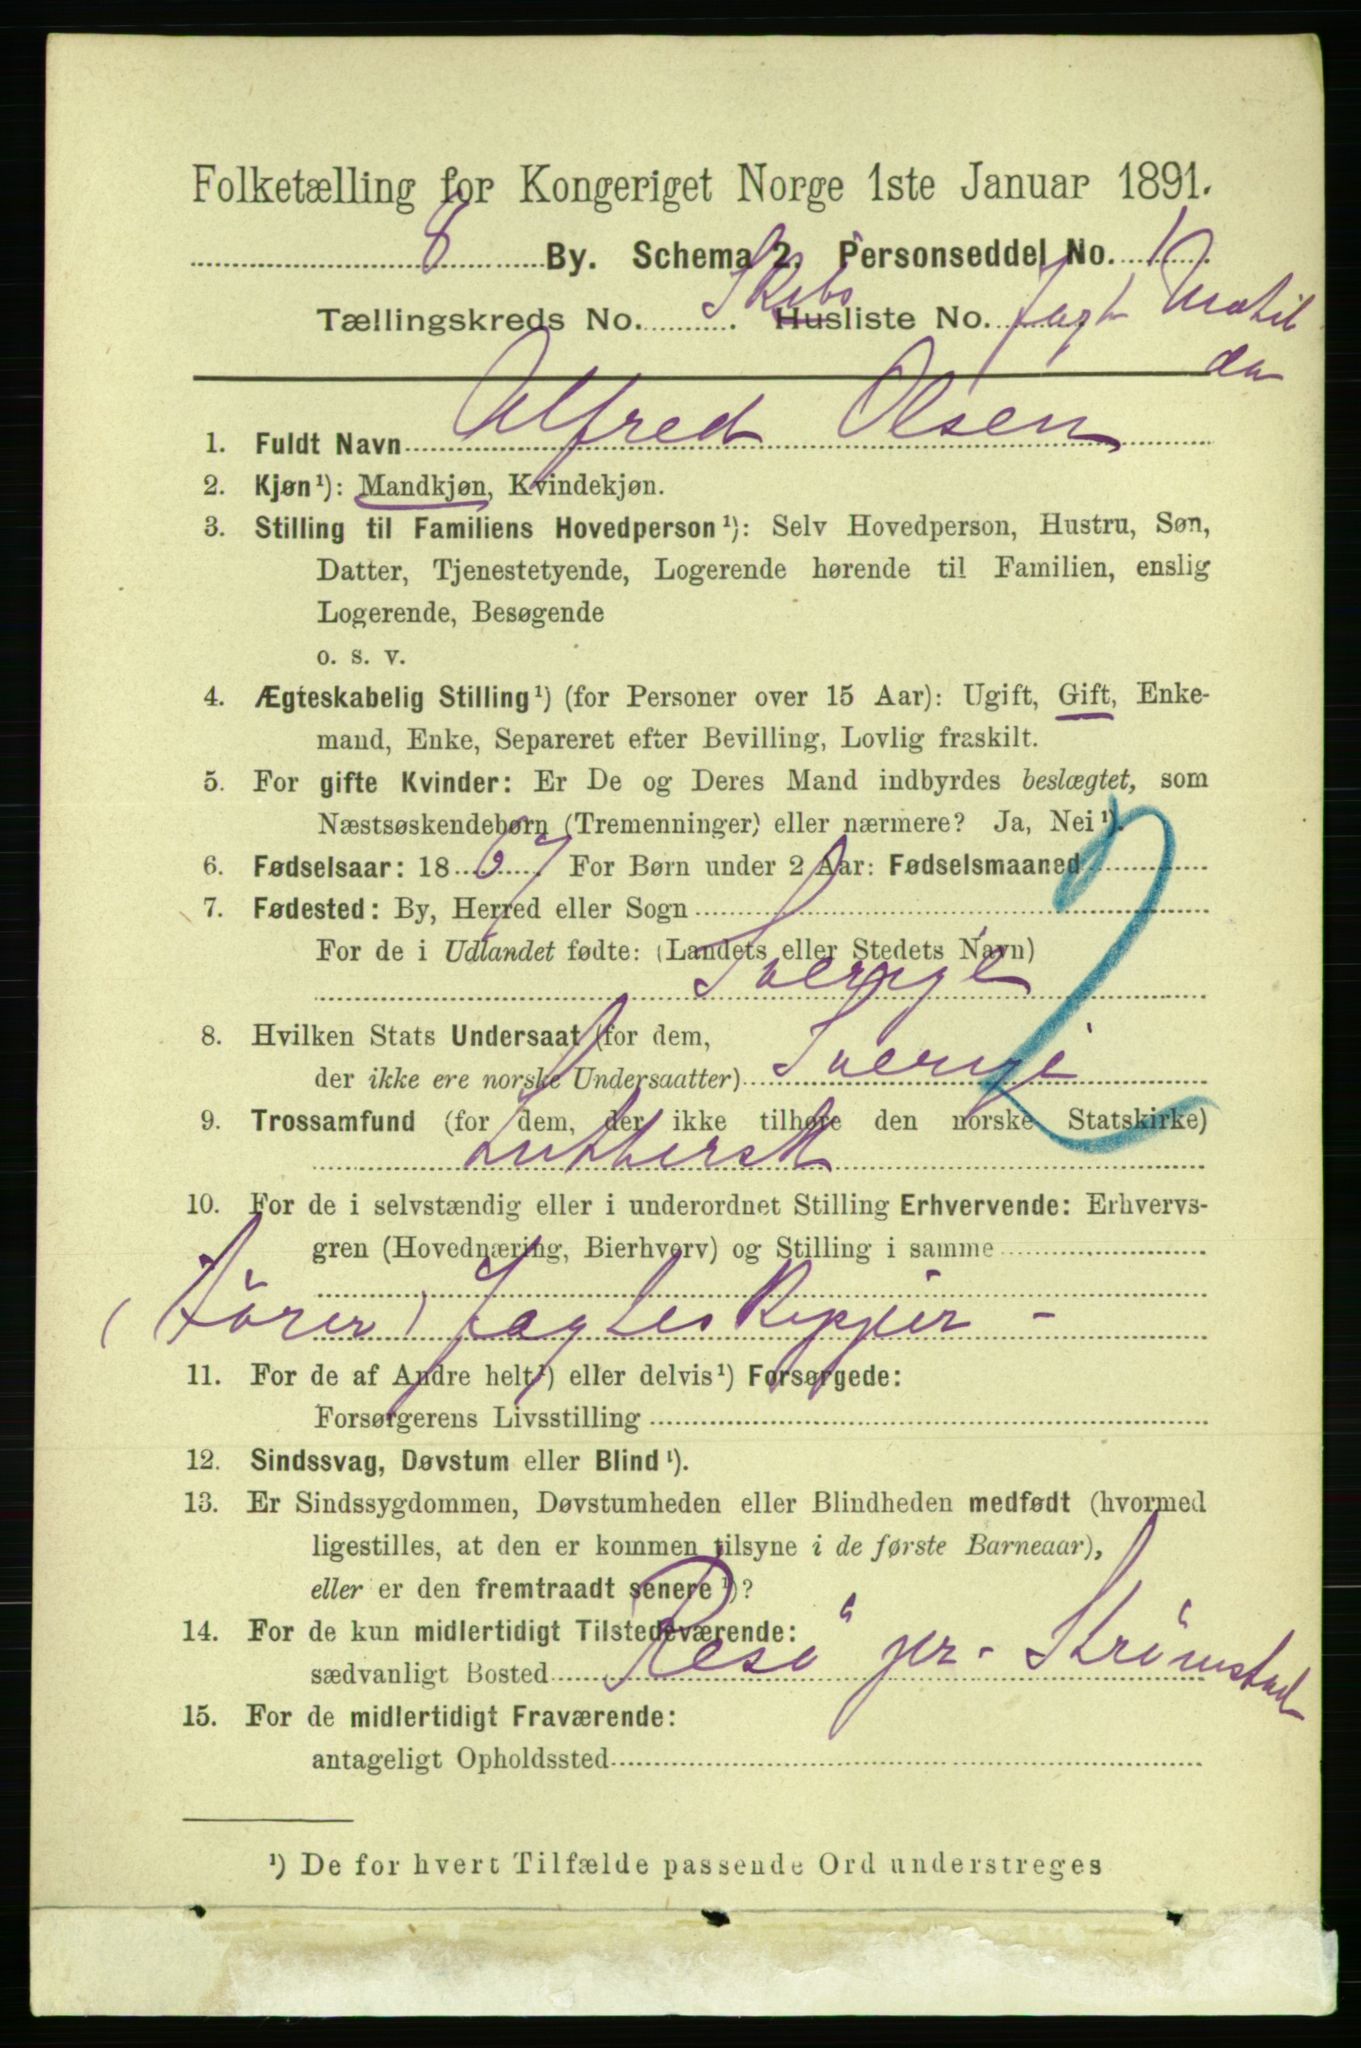 Folketælling for Kongeriget Norge 1ste Januar 1891.
8 By. Schema 2. Personseddel No. 1
Tællingskreds No. Skibs Husliste No. Jagt Matil
da
1. Fuldt Navn Alfred Olsen
2. Kjøn¹): Mandkjøn, Kvindekjøn.
3. Stilling til Familiens Hovedperson¹): Selv Hovedperson, Hustru, Søn,
Datter, Tjenestetyende, Logerende hørende til Familien, enslig
Logerende, Besøgende
o. s. v.
4. Ægteskabelig Stilling¹) (for Personer over 15 Aar): Ugift, Gift, Enke-
mand, Enke, Separeret efter Bevilling, Lovlig fraskilt.
5. For gifte Kvinder: Er De og Deres Mand indbyrdes beslægtet, som
Næstsøskendebørn (Tremenninger) eller nærmere? Ja, Nei¹).
6. Fødselsaar: 1867 For Børn under 2 Aar: Fødselsmaaned
7. Fødested: By, Herred eller Sogn
For de i Udlandet fødte: (Landets eller Stedets Navn)
Sverige
8. Hvilken Stats Undersaat (for dem,
der ikke ere norske Undersaatter) Sverige
9. Trossamfund (for dem, der ikke tilhøre den norske Statskirke)
Luthersk
10. For de i selvstændig eller i underordnet Stilling Erhvervende: Erhvervs-
gren (Hovednæring, Bierhverv) og Stilling i samme
(Förer) Jagteskepper -
11. For de af Andre helt¹) eller delvis¹) Forsørgede:
Forsørgerens Livsstilling
12. Sindssvag, Døvstum eller Blind¹).
13. Er Sindssygdommen, Døvstumheden eller Blindheden medfødt (hvormed
ligestilles, at den er kommen tilsyne i de første Barneaar),
eller er den fremtraadt senere¹)?
14. For de kun midlertidigt Tilstedeværende:
sædvanligt Bosted Resö per - Strömstad
15. For de midlertidigt Fraværende:
antageligt Opholdssted
¹) De for hvert Tilfælde passende Ord understreges